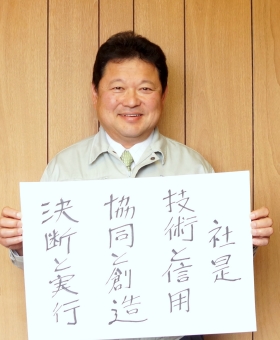 社是
技術と信用
協同と創造
決断と実行